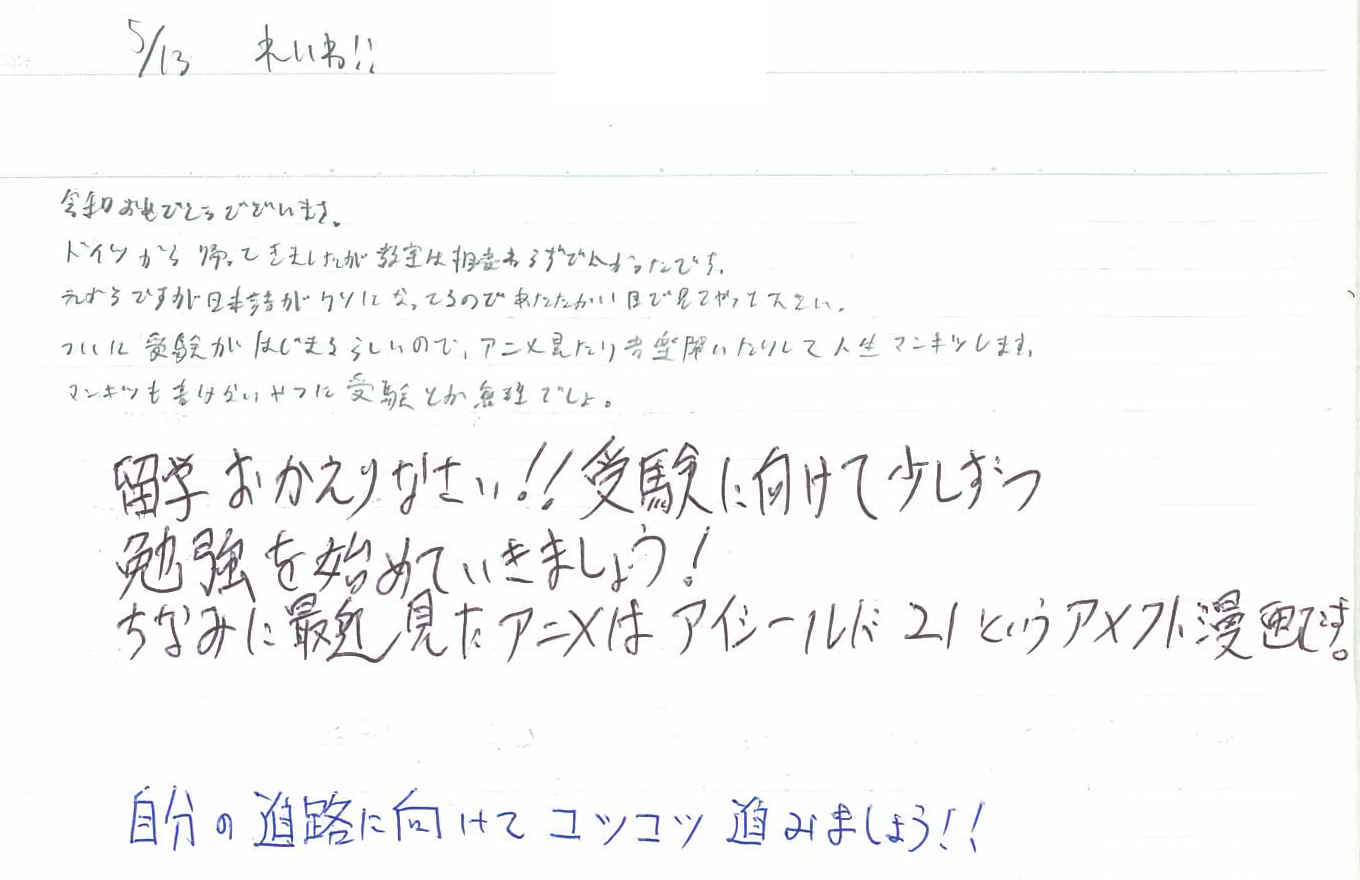 5/13 れいわ!!
令和おめでとうございます。
ドイツから帰ってきましたが教室は相変わらずでよかったです。
ですが日本語がクソになってるのであたたかい目で見てやって下さい。
ついに受験がはじまるらしいので、アニメ見たり音楽聞いたりして人生マンキツします。
マンキツも書けないやつに受験とか無理でしょ。
留学おかえりなさい!!受験に向けて少しずつ
勉強を始めていきましょう!
ちなみに最近見たアニメはアイシールド21というアメフト漫画です。
自分の道路に向けてコツコツ進みましょう!!